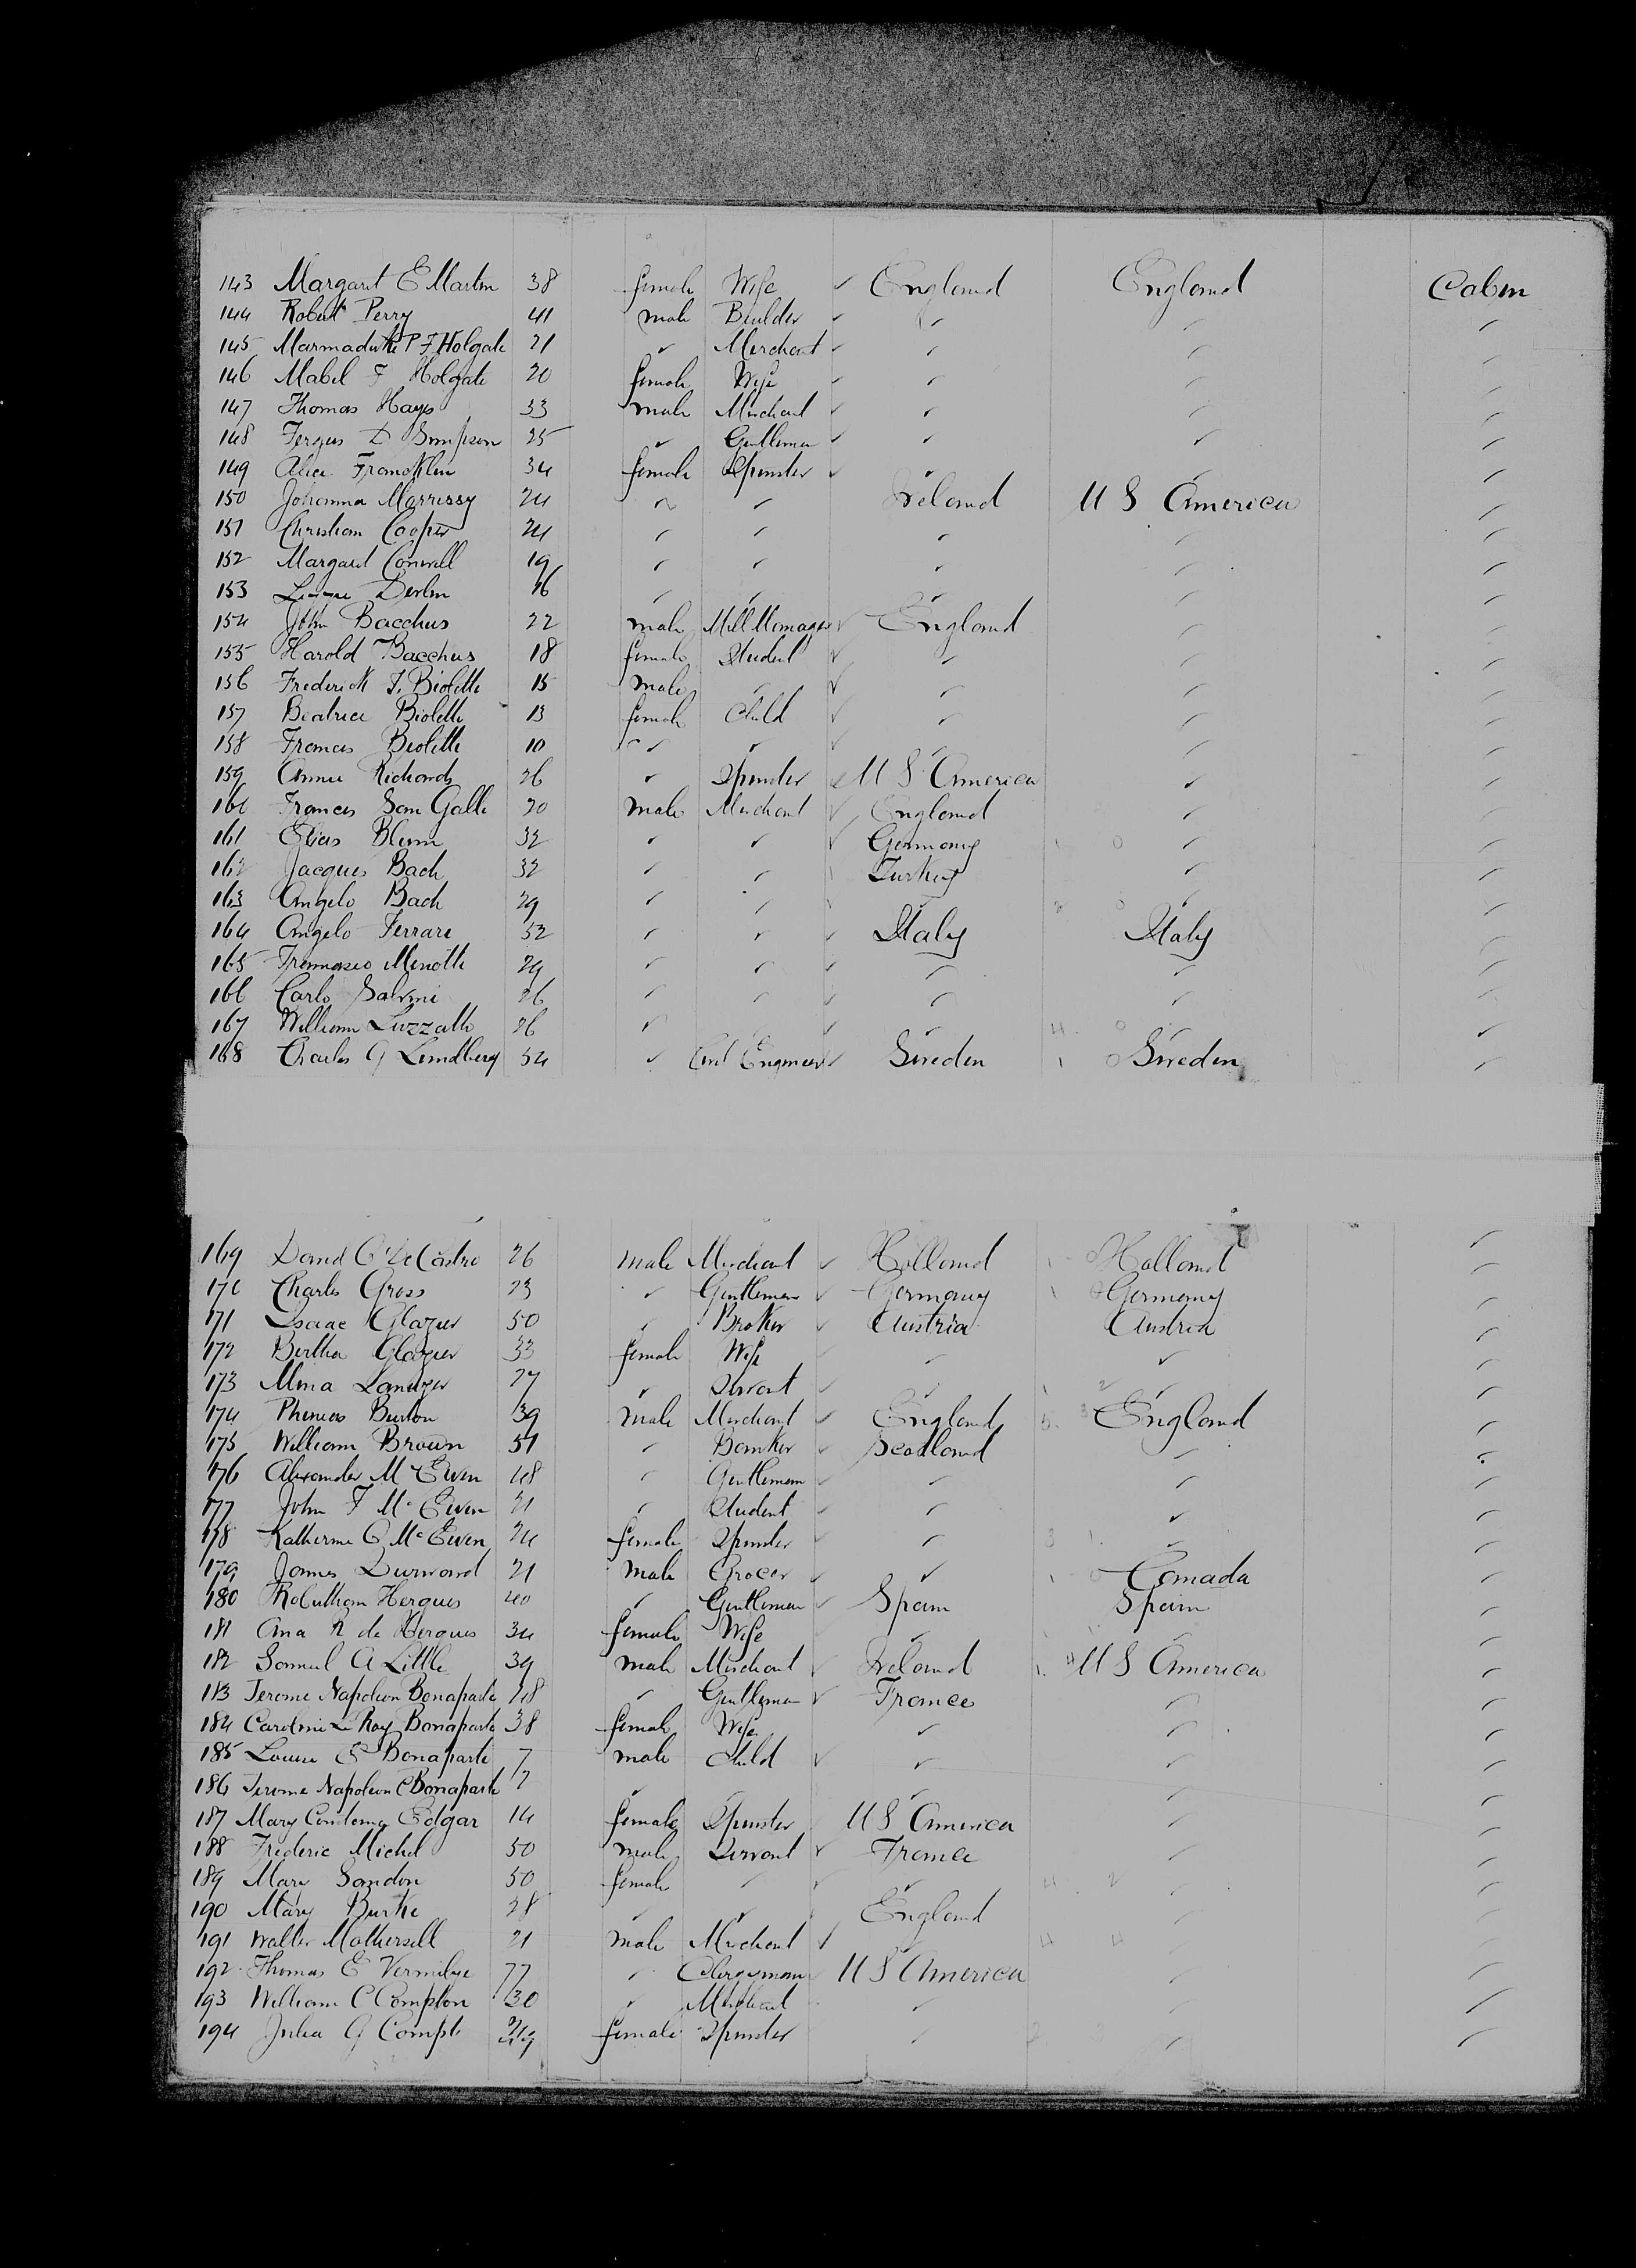 143 Margaret E Martin 38 female Wife ✓ England England Cabin
144 Robert Perry 41 male Builder ✓ ✓ ✓ ✓
145 Marmaduke P F Holgate 21 ✓ Merchant ✓ ✓ ✓ ✓
146 Mabel F Holgate 20 female Wife ✓ ✓ ✓ ✓
147 Thomas Hays 33 male Merchant ✓ ✓ ✓ ✓
148 Fergus D Simpson 25 ✓ Gentleman ✓ ✓ ✓ ✓
149 Alice Francklin 34 female Spinster ✓ ✓ ✓ ✓
150 Johanna Morrissy 24 ✓ ✓ Ireland U S America ✓
151 Christian Cooper 24 ✓ ✓ ✓ ✓ ✓
152 Margaret Conwell 19 ✓ ✓ ✓ ✓ ✓
153 Devlin 16 ✓ ✓ ✓ ✓ ✓
154 John Bacchus 22 male Mill Manager ✓ England ✓ ✓
155 Harold Bacchus 18 female Student ✓ ✓ ✓ ✓
156 Frederick J. Biolette 15 male ✓ ✓ ✓ ✓ ✓
157 Beatrice Biolette 13 female Child ✓ ✓ ✓ ✓
158 Frances Biolette 10 ✓ ✓ ✓ ✓ ✓ ✓
159 Annie Richards 26 ✓ Spinster ✓ U S America ✓ ✓
160 Francis San Galli 20 male Merchant ✓ England ✓ ✓
161 Elias Blum 32 ✓ ✓ ✓ Germany ✓ ✓
162 Jacques Bach 32 ✓ ✓ Turkey ✓ ✓
163 Angelo Bach 29 ✓ ✓ ✓ ✓ ✓
164 Angelo Ferrari 52 ✓ ✓ ✓ Italy Italy ✓
165 Minotti 29 ✓ ✓ ✓ ✓ ✓ ✓
166 Carlo Salvini 26 ✓ ✓ ✓ ✓ ✓ ✓
167 William Luzzatto 26 ✓ ✓ ✓ ✓ ✓
168 Charles G Lundberg 54 ✓ Civil Engineer ✓ Sweden Sweden ✓
169 David C DeCastro 26 male Merchant ✓ Holland Holland ✓
170 Charles Gross 23 ✓ Gentleman ✓ Germany Germany ✓
171 Isaac Glazier 50 ✓ Broker ✓ Austria Austria ✓
172 Bertha Glazier 33 female Wife ✓ ✓ ✓ ✓
173 Mina 27 ✓ Servant ✓ ✓ ✓ ✓
174 Phineas Burton 39 male Merchant ✓ England England ✓
175 William Brown 51 ✓ Banker ✓ Scotland ✓ ✓
176 Alexander M Ewen 48 ✓ Gentleman ✓ ✓ ✓ ✓
177 John F Mc Ewen 21 ✓ Student ✓ ✓ ✓ ✓
178 Katherine C Mc Ewen 24 female Spinster ✓ ✓ ✓ ✓
179 James Durward 21 male Grocer ✓ ✓ Canada ✓
180 Hergues 40 ✓ Gentleman ✓ Spain Spain ✓
181 Ana R de Hergues 34 female Wife ✓ ✓ ✓
182 Samuel A Little 39 male Merchant ✓ Ireland U S America ✓
183 Jerome Napoleon Bonaparte 48 ✓ Gentleman ✓ France ✓ ✓
184 Caroline Le Roy Bonaparte 38 female Wife ✓ ✓ ✓
185 Louise E Bonaparte 7 male Child ✓ ✓ ✓ ✓
186 Jerome Napoleon C Bonaparte 7 ✓ ✓ ✓ ✓ ✓
187 Mary Edgar 14 female Spinster U S America ✓ ✓
188 Frederic Michel 50 male Servant ✓ France ✓ ✓
189 Mary Sandon 50 female ✓ ✓ ✓ ✓ ✓
190 Mary Burke 28 ✓ ✓ ✓ England ✓ ✓
191 Walter Mothersell 21 male Merchant ✓ ✓ ✓ ✓
192 Thomas E Vermilye 77 ✓ Clergyman U S America ✓ ✓
193 William C Compton 30 ✓ Merchant ✓ ✓ ✓
194 Julia G Compt female Spinster ✓ ✓ ✓